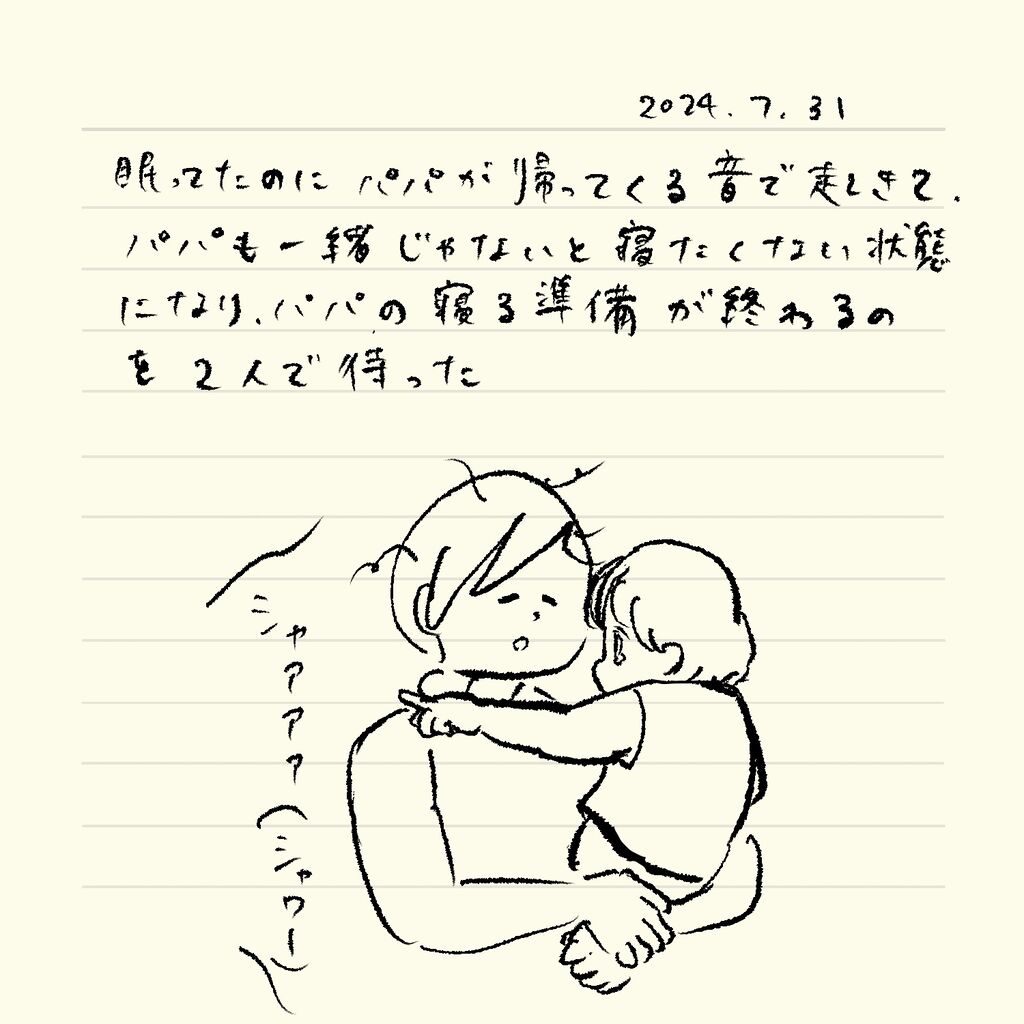 2024.7.31
眠ってたのに パパが帰ってくる音で走しきて.
パパも一緒じゃないと寝たくない状態
になり、パパの寝る準備が終わるの
を2人で待った
シャアアア(シャワー)